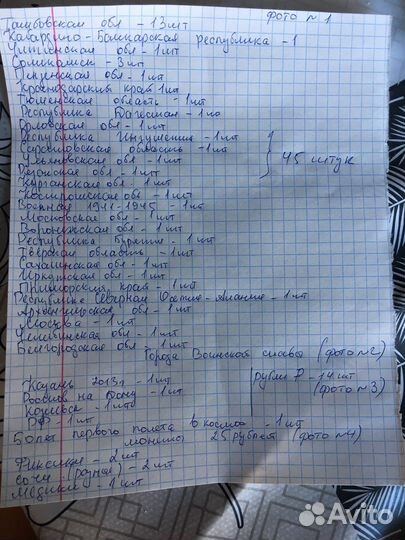 Тамбовская обл - 13 шт фото № 1
Кабардино-Балкарская республика - 1
обл - 1 шт
- 3 шт
Пензенская обл - 1 шт
Краснодарский край 1 шт
Тюменская область - 1 шт
Республика Дагестан - 1
Орловская обл - 1 шт
Республика Ингушетия - 1 шт
Саратовская область - 1 шт
Ульяновская обл - 1 шт 45 штук
обл - 1 шт
Курганская обл - 1 шт
Костромская обл - 1 шт
1941-1945 - 1 шт
Московская обл - 1 шт
Воронежская обл - 1 шт
Республика Бурятия - 1 шт
Тверская область - 1 шт
Сахалинская обл - 1 шт
Иркутская обл - 1 шт
Приморский край - 1 шт
Республика Северная Осетия-Алания - 1 шт
Архангельская обл - 1 шт
Москва - 1 шт
Челябинская обл - 1 шт
Белгородская обл - 1 шт
Города Воинской славы (фото №2)
Казань 2013г - 1 шт рубли Р - 14 шт
на Дону - 1 шт (фото №3)
- 1 шт
РФ - 1 шт
первого полета в космос - 1 шт
монеты 25 рублей (фото №4)
Фиксики - 2 шт
Сочи - 2 шт
Медики - 1 шт
Avito